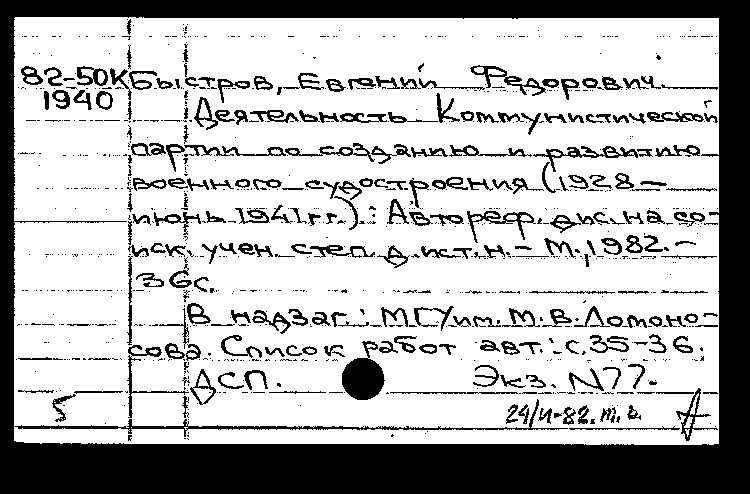 82-50К Быстров, Евгений Федорович.
1940 Деятельность Коммунистической
партии по созданию и развитию
военного судостроения (1928 –
июнь 1941 гг.): Автореф. дис. на со-
иск. учен. степ. д. ист. н. – М., 1982. –
36 с.
В надзаг.: МГУ им. М. В. Ломоно-
сова. Список работ авт.: с. 35-36.
ДСП. Экз. N 77.
5 24/II-82. т. в.